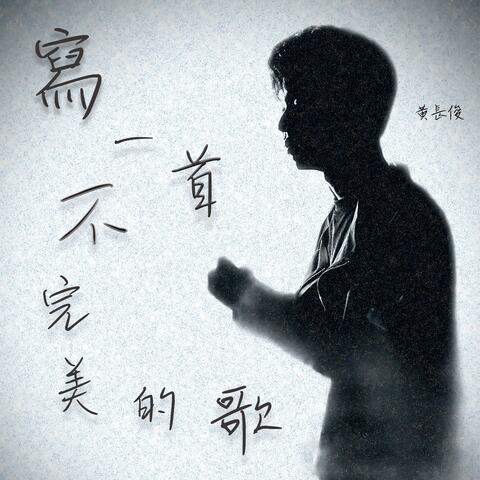 寫一首
不完美的歌
黃長俊